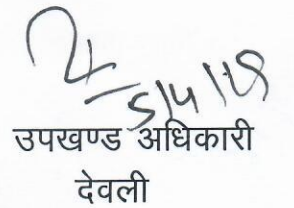 5/4/18
उपखण्ड अधिकारी
देवली